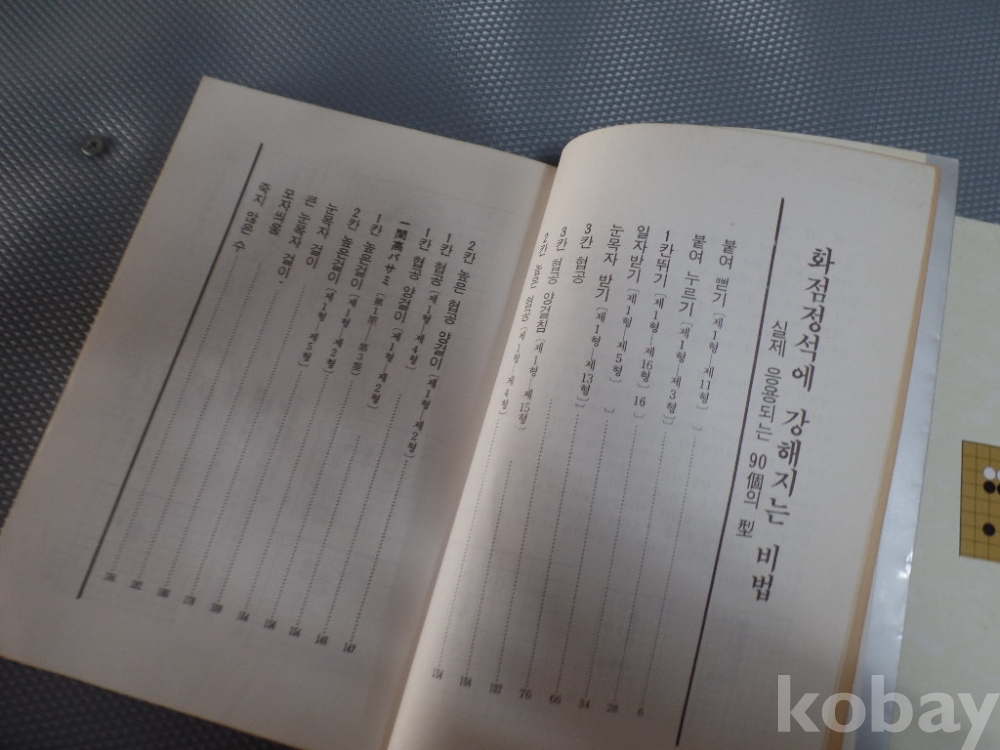 화점정석에 강해지는 비법
실제 응용되는 90個의 型
붙여 뻗기 〔제1형—제11형〕
붙여 누르기 〔제1형—제3형〕 6
1칸뛰기 〔제1형—제16형〕 28
일자받기 〔제1형—제5형〕 16 34
눈목자 받기 〔제1형—제13형〕 66
3칸 협공 76
3칸 협공 양걸침 〔제1형—제15형〕 102
2칸 높은 협공 〔제1형—제4형〕 104
2칸 높은 협공 양걸이 〔제1형—제2형〕 134
1칸 협공 〔제1형—제4형〕 147
1칸 협공 양걸이 〔제1형—제2형〕
一間高バサミ
1칸 높은걸이 〔第1型 第3型〕
2칸 높은걸이 〔제1형 제2형〕
눈목자 걸이 〔제1형 제5형〕
큰 눈목자 걸이
모자씌움
죽지 않은 수
kobay